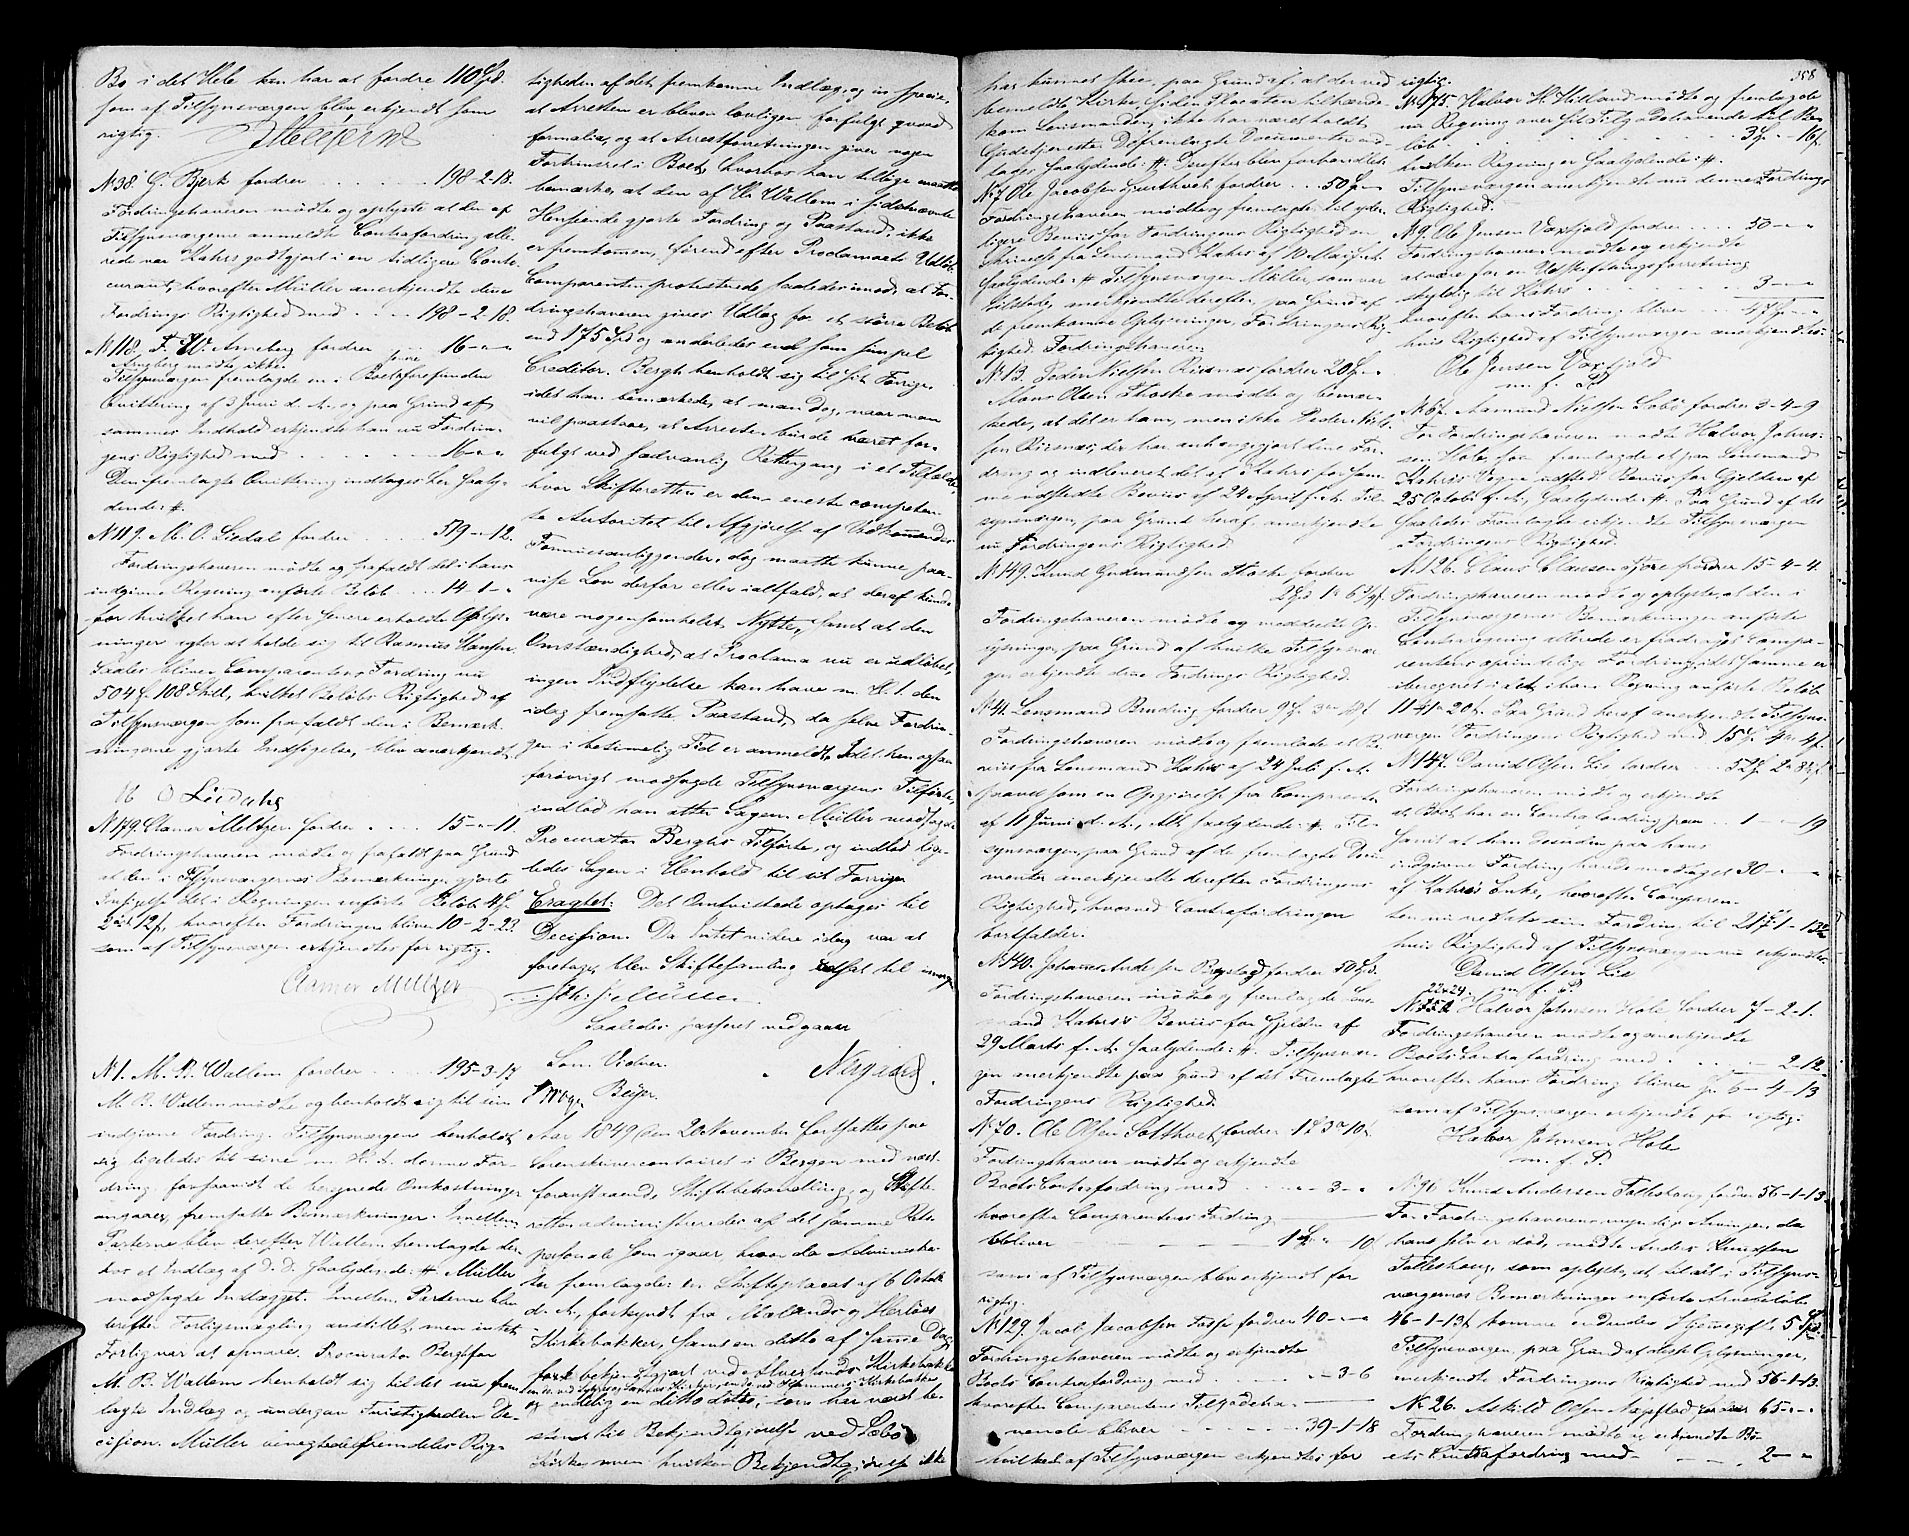 Bo i det Hele kan har at fordre 110 Spd.
som af Tilsynsværgen blev erkjendt som
rigtig.
N 38. G. Bjerk fordrer 198-2-18.
Fordringshaveren mødte og oplyste at den af
Tilsynsværgerne anmeldte Contrafordring alle-
rede var Kahrs godtgjort i en tidligere Conto
curant, hvorefter Müller anerkjendte dine
Fordrings Rigtighed med 198-2-18.
N 118. F. W. Arneberg fordrer 16-"-"
mødte ikke.
Tilsynsværgen fremlagde en i Boet forefunden
Qvittering af 3 Juni d. A. og paa Grund af
sammes Indhold erkjendte han nu Fordrin-
gens Rigtighed med 16-"-"
Den fremlagte Qvittering indtages her saaly-
dende: #.
N 119. M. O. Liedal fordrer 519-"-12.
Fordringshaveren mødte og frafaldt det i hans
indgivne Regning anførte Beløb 14-1-"
for hvilket han efter senere erholdte Oplys-
ninger agter at holde sig til Rasmus Hansen.
Saaledes bliver Comparentens Fordring nu
504 Spd. 108 Skill, hvilket Beløbs Rigtighed af
Tilsynsværgen som frafaldt den i Bemærk-
ningerne gjorte Indsigelse, blev anerkjendt.
M O Liedahl
N 179. Clamer Meltzer fordrer 15-"-11.
Fordringshaveren mødte og frafaldt paa Grund
af den i Tilsynsværgernes Bemærkninger gjorte
Indsigelse det i Regningen anførte Beløb 4 Spd.
12 s, hvorefter Fordringen bliver 10-2-23.
som af Tilsynsværgen erkjendtes for rigtig.
Clamer Meltzer
N 1. M. R. Wallem fordrer 195-3-17
M. R. Wallem mødte og henholdt sig til sin
indgivne Fordring. Tilsynsværgen henholdt
sig ligeledes til sine m. H. t. denne For-
dring, forsaavidt de beregnede Omkostninger
angaaer, fremsatte Bemærkninger. Imellem
Parterne blev derefter Wallem fremlagde der-
hos et Indlæg af D. D. saalydende: # Müller
modsagde Indlægget. Imellem Parterne blev
derefter Forligsmægling anstillet, men intet
Forlig var at opnaae. Procurator Bergh for
M. R. Wallem henholdt sig til det nu frem-
lagte Indlæg og undergav Tvistigheden De-
cision. Müller benegtede fremdeles Rig-
tigheden af det fremkomne Indlæg, og in specie,
at Arresten er bleven lovligen forfulgt qvoad
formalia, og at Arrestforretningen giver nogen
Fortrinsret i Boet, hvorhos han tillige maatte
bemærke, at den af Hr Wallem i sidstnævnte
Henseende gjorte Fordring og Paastand, ikke
er fremkommen, førend efter Proclamaets Udløb.
Comparenten protesterede saaledes imod, at For-
dringshaveren gives Udlæg for et større Beløb
end 175 Spd og anderledes end som simpel
Creditor. Bergh henholdt sig til sit Forrige,
idet han bemærkede, at man dog, naar man
vil paastaae, at Arresten burde været for-
fulgt ved sædvanlig Rettergang i et Tilfælde,
hvor Skifteretten er den eneste competen-
te Autoritet til Afgjørelse af Vedkommendes
Formuesanliggender, dog maatte kunne paa-
vise Lov derfor eller ialtfald, at deraf kunde
være nogensomhelst Nytte, samt at den
Omstændighed, at Proclama nu er udløbet,
ingen Indflydelse kan have m. H. t. den
idag fremsatte Paastand, da selve Fordrin-
gen i betimelig Tid er anmeldt. Idet han ogsaa
forøvrigt modsagde Tilsynsværgens Tilførte,
indlod han atter Sagen. Müller modsagde
Procurator Berghs Tilførte, og indlod lige-
ledes Sagen i Henhold til sit Forrige.
Eragtet: Det Omtvistede optages til
Decision. Da Intet videre idag var at
foretage, blev Skiftesamling udsat til imorgen
Müller.
Saaledes passeret vedgaaer
Som Vidner.
Beyer.
Aar 1849 den 20 November fortsattes paa
Sorenskrivercontoiret i Bergen med næst-
foranstaaende Skiftebehandling, og Skifte-
retten administreredes af det samme Rets-
personale som igaar, hvor da Administra-
tor fremlagde: en Skifteplacat af 6 Octobr
d. A., forkyndt fra Mælands og Herløes
Kirkebakker, samt en ditto af samme Dag
bekjendtgjort ved Alverlands Kirkebakke
og endelig en ditto ditto, som har været be-
stemt til Bekjendtgjørelse ved Sæbø
Kirke men hvilken Bekjendtgjørelse ikke
358
har kunnet skee, paa Grund af, at der ved
bemeldte Kirke, siden Placaten tilhænde-
kom Lensmanden, ikke har været holdt
Gudstjeneste. De fremlagte Documenter ind-
tages saalydende: #. Derefter blev forhandlet
N 7 Ole Jacobsen Hjertvik fordrer 50 Spd -"
Fordringshaveren mødte og fremlagde til yder-
ligere Beviis for Fordringens Rigtighed en
Skrivelse fra Lensmand Kahrs af 10 Mai f. A.
saalydende: # Tilsynsværgen Müller, som var
tilstede, anerkjendte derefter, paa Grund af
de fremkomne Oplysninger, Fordringens Rig-
tighed. Fordringshaveren
N 13. Peder Nielsen Risnæs fordrer 20 Spd -"
Mons Olsen Thoska mødte og bemær-
kede, at det er ham, men ikke Peder Niel-
sen Risnæs, der har anhængiggjort dene For-
dring og indleveret det af Kahrs for sam-
me udstedte Beviis af 24 April f. A. Til-
synsværgen, paa Grund heraf, anerkjendte
nu Fordringens Rigtighed.
N 149. Knud Gudmundsen Thoske fordrer
2 Spd 1 6
Fordringshaveren mødte og meddelte Op-
lysninger, paa Grund af hvilke Tilsynsvær-
gen erkjendte dine Fordrings Rigtighed.
N 41. Lensmand Bendrig fordrer 9 Spd 3
Fordringshaveren mødte og fremlade et Be-
viis fra Lensmand Kahrs af 24 Juli f. A.
saavel som en Opgjørelse fra Comparenten
af 11 Juni d. A., Alt saalydende: # Til-
synsværgen, paa Grund af de fremlagte Docu-
menter anerkjendte derefter Fordringens
Rigtighed, hvorved Contrafordringen
bortfalder.
N 140. Johannes Andersen Bogstad fordrer 50 Spd.
Fordringshaveren mødte og fremlagde Lens-
mand Kahrs's Beviis for Gjelden af
29 Marts f. A. saalydende: #. Tilsynsvær-
gen anerkjendte paa Grund af det Fremlagte
Fordringens Rigtighed.
N 70. Ole Olsen Solthvet fordrer 1 3 10
Fordringshaveren mødte og erkjendte
Boets Contrafordring med "-3-"
hvorefter Comparentens Fordring
bliver 1 " 10
som af Tilsynsværgen blev erkjendt for
rigtig.
N 129. Jacob Jacobsen fordrer 40-"-"
Fordringshaveren mødte og erkjendte
Boets Contrafordring med "-3-6
hvorefter Comparentens Tilgodeha-
vende bliver 39-1-18
hvilket af Tilsynsværgen erkjendtes for
rigtig.
N 175. Halvor H. Hitland mødte og fremlagde
en Regning over sit Tilgodehavende til Be-
løb 3 " 16
hvilken Regning er saalydende: #.
Tilsynsværgen anerkjendte nu denne Fordrings
Rigtighed.
N 9. Ole Jensen Vaxfjold fordrer 50-"-"
Fordringshaveren mødte og erkjendte
at være for en Udskiftningsforretning
skyldig til Kahrs 3-"-"
hvorefter hans Fordring bliver 47-"-"
hvis Rigtighed af Tilsynsværgen anerkjendtes
Ole Jensen Vaxfjold
m. f. P.
N 67. Asmund Nielsen Sæbø fordrer 3-4-9
For Fordringshaveren mødte Halvor Johns-
sen Hole, som fremlagde et paa Lensmand
Kahrs's Vegne udstedt Beviis for Gjelden af
25 Octobr f. A., saalydende: #. Paa Grund af det
saaledes Fremlagte erkjendte Tilsynsværgen
Fordringens Rigtighed.
N. 126. Claus Clausen fordrer 15-4-4.
Fordringshaveren mødte og oplyste, at den i
Tilsynsværgernes Bemærkninger anførte
Contraregning allerede er fradraget Compa-
rentens oprindelige Fordring, idet samme er
iberegnet i det, i hans Regning anførte Beløb
11 4 20. Paa Grund heraf anerkjendte Tilsyns-
værgen Fordringens Rigtighed med 15 4 4
N 147. David Olsen Lie fordrer 52 2
Fordringshaveren mødte og erkjendte
at Boet har en Contrafordring paa 1-"-19
samt at han desuden paa hans
indgivne Fordring havde modtaget 30-"-"
af Kahrs's Enke, hvorefter Comparen-
ten nu nedsatte sin Fordring til 21
hvis Rigtighed af Tilsynsværgen nu erkjendtes
David Olsen Lie
m. f. P.
22 & 29.
N 152 Halvor Johnsen Hole fordrer 7-2-1.
Fordringshaveren mødte og anerkjendte
Boets Contrafordring med "-2-12
hvorefter hans Fordring bliver 6-4-13
som af Tilsynsværgen erkjendtes for rigtig.
Halvor Johnsen Hole
m. f. P.
N 96 Knud Andersen Tolleshoug fordrer 56-1-13
For Fordringshaverens umyndige Arvinger, da
hans selv er død, mødte Anders Knudsen
Tolleshoug, som oplyste, at til det i Tilsyns-
værgernes Bemærkninger anførte Arvebeløb
46-1-13 komme endvidere
Tilsynsværgen, paa Grund af disse Oplysninger,
erkjendte Fordringens Rigtighed med 56-1-13.
N. 26. Askild Olsen fordrer 65-"-"
Fordringshaveren mødte og erkjendte Bo-
ets Contrafordring med 2-"-"